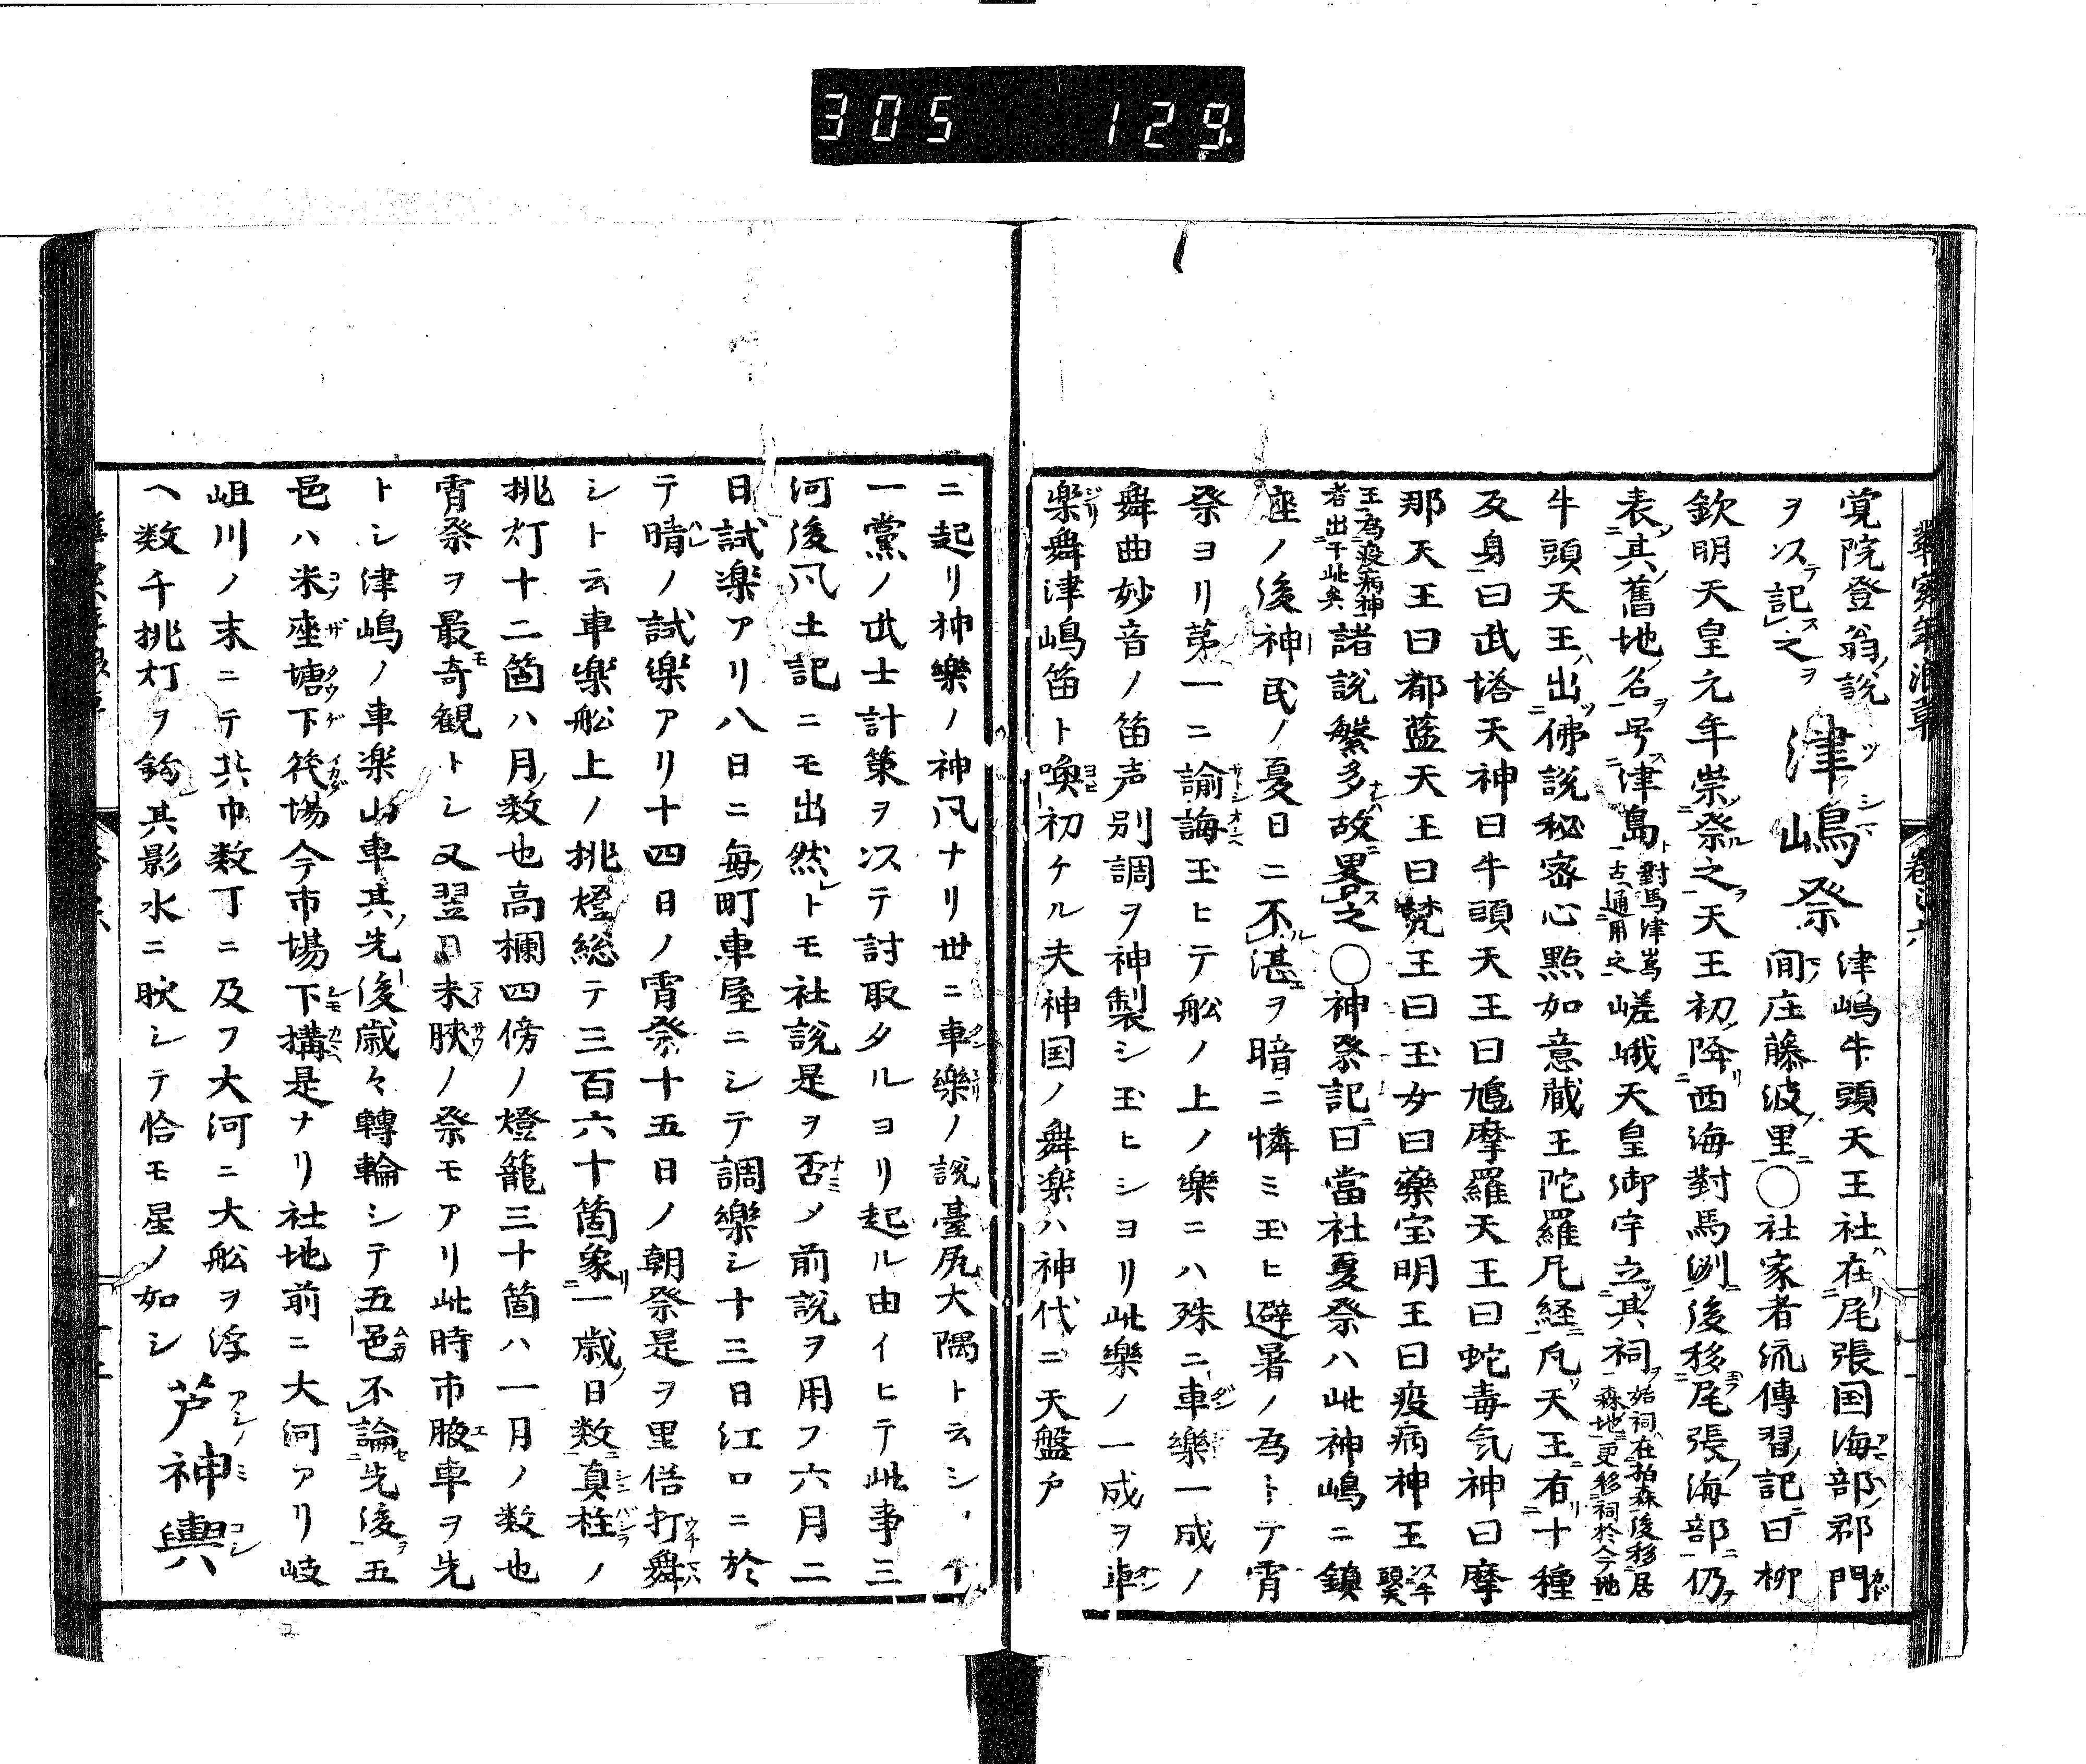 305 129
覚院登翁ノ説
ヲ以テ記ス之ヲ
津嶋祭
津嶋牛頭天王社ハ在リ尾張国海部ノ郡門
間ノ庄藤波ノ里ニ〇社家者流傳習ノ記ニ曰柳
欽明天皇元年崇祭ル之ヲ天王初ノ降リ西海對馬洲ニ後移ラ尾張ノ海部ニ仍ヲ
表ノ其ノ舊地ノ名ヲ号ス津島ト
對馬津嶌
古通用之
嵯峨天皇御宇立ツ其ノ祠ヲ
始祠ハ在柏森後移居
森地更移祠於今地
牛頭天王ハ出ツ佛説秘密心點如意蔵王陀羅尼経ニ凡ソ天王ニ有リ十種
反身曰武塔天神曰牛頭天王曰鳩摩羅天王曰蛇毒気神曰摩
那天王曰都藍天王曰梵王曰玉女曰藥宝明王曰疫病神王
王為疫病神
者出于此矣
諸説繁多ナレハ故ニ畧ス之〇神祭記ニ曰當社夏祭ハ此神嶋ニ鎮
座ノ後神民ノ夏日ニ不ルニ湛ヲ暗ニ憐ミ玉ヒ避暑ノ為トテ宵
祭ヨリ第一ニ諭誨玉ヒテ舩ノ上ノ樂ニハ殊ニ車樂一成ノ
舞曲妙音ノ笛声別調ヲ神製シ玉ヒシヨリ此樂ノ一成ヲ車
楽舞津嶋笛ト喚初ケル夫神国ノ舞楽ハ神代ニ天盤戸
ニ起リ神樂ノ神風ナリ世ニ車樂ノ説臺尻大隅ト云シ
一黨ノ武士計策ヲ以テ討取タルヨリ起ル由イヒテ此事三
河後風土記ニモ出然レトモ社説是ヲ否メ前説ヲ用フ六月二
日試楽アリ八日ニ毎町車屋ニシテ調樂シ十三日江口ニ於
テ晴ノ試樂アリ十四日ノ宵祭十五日ノ朝祭是ヲ里俗打舞
シト云車樂舩上ノ挑燈総テ三百六十箇象リ一歳ノ日数ニ真柱ノ
挑灯十二箇ハ月ノ数也高欄四傍ノ燈籠三十箇ハ一月ノ数也
宵祭ヲ最モ奇観トシ又翌日未腴ノ祭モアリ此時市腋車ヲ先
トシ津嶋ノ車楽山車其ノ先後歳々轉輪シテ五邑不論セ先後ヲ五
邑ハ米座塘下筏場今市場下搆是ナリ社地前ニ大河アリ岐
岨川ノ末ニテ其巾数丁ニ及フ大河ニ大舩ヲ浮
ヘ数千挑灯ヲ鈎其影水ニ映シテ恰モ星ノ如シ
芦神輿